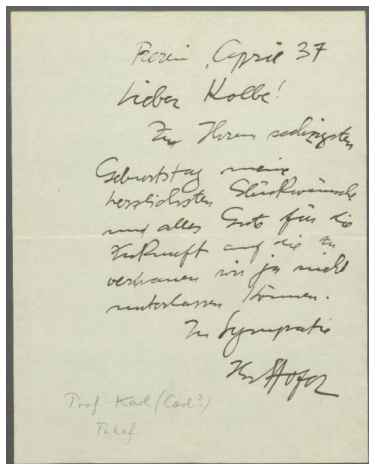 Berlin, April 37
Lieber Kolbe!
Zu Ihrem sechzigsten
Geburtstag meine
herzlichsten Glückwünsche
und alles Gute für die
Zukunft auf die zu
vertrauen wir ja nicht
unterlassen können.
In Sympathie
Ihr Hofer
Prof. Karl (Carl?)
Telef.